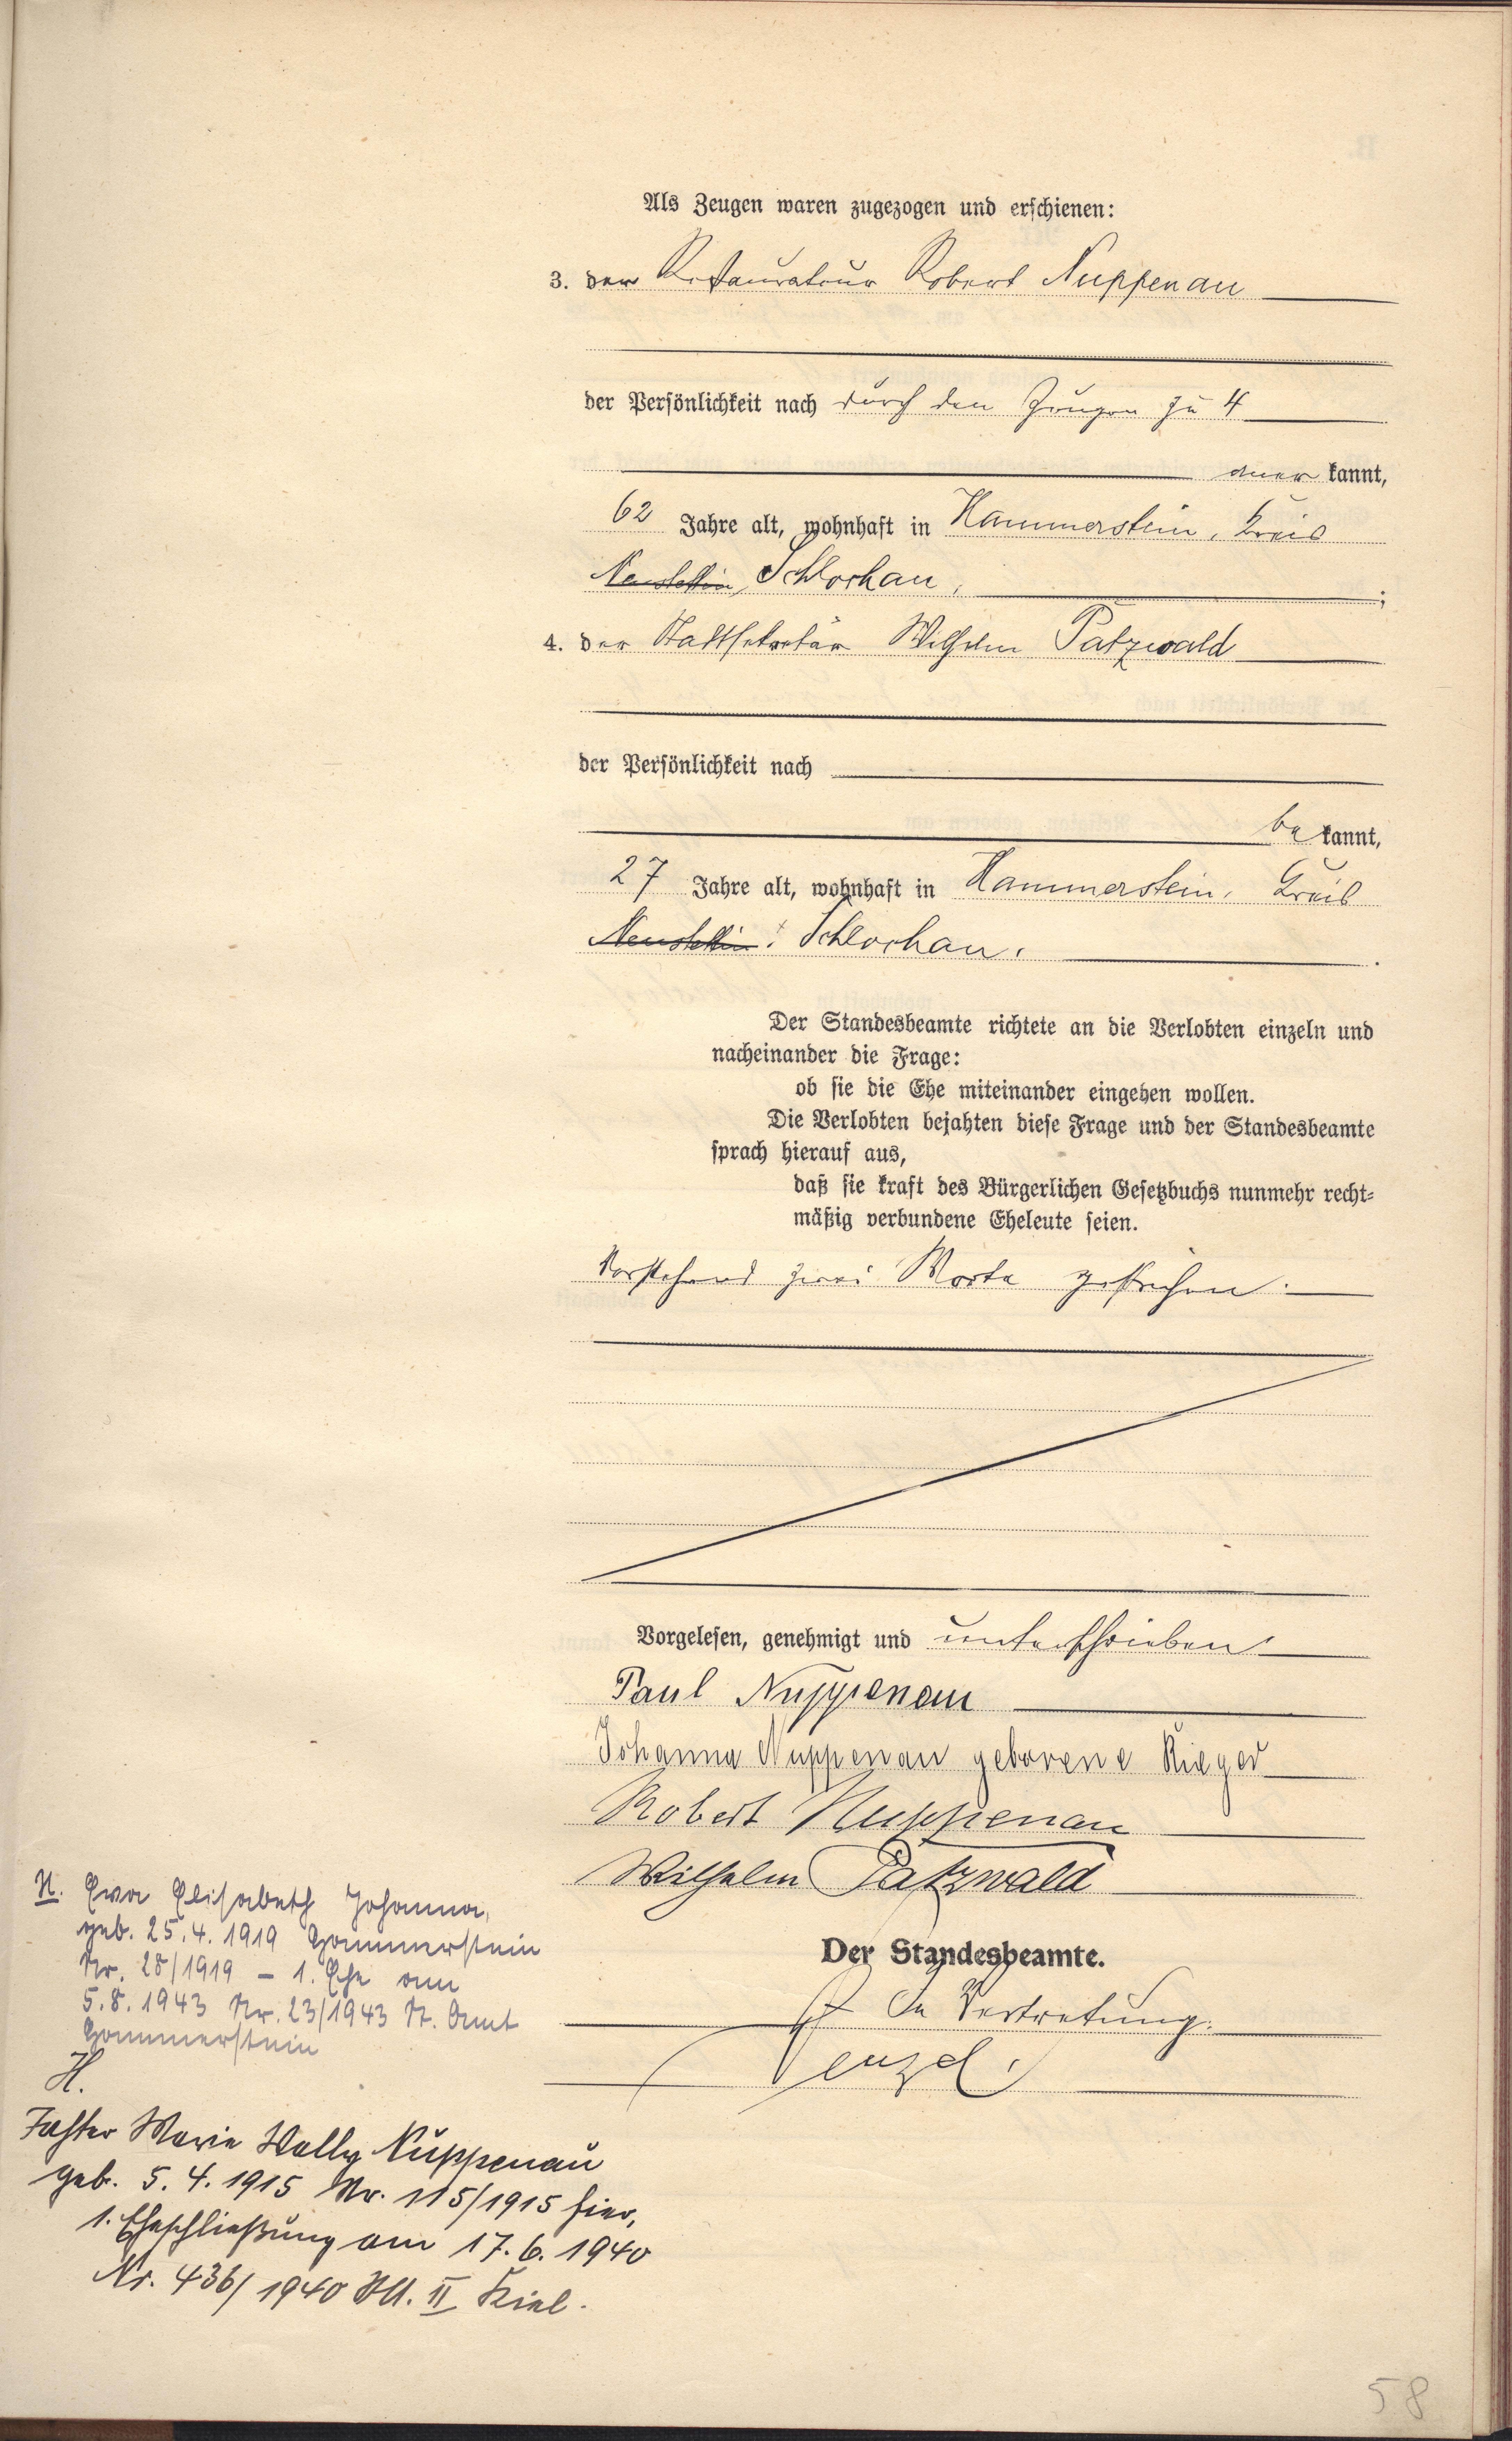 Als Zeugen waren zugezogen und erschienen:
3. der Restaurateur Robert Nuppenau
der Persönlichkeit nach durch den Zeugen zu 4
aner kannt,
62 Jahre alt, wohnhaft in Hammerstein, Kreis
Neustettin, Schlochau,;
4. der Stadtsekretär Wilhelm Patzwald
der Persönlichkeit nach
be kannt,
27 Jahre alt, wohnhaft in Hammerstein, Kreis
Neustettin. Schlochau.
Der Standesbeamte richtete an die Verlobten einzeln und
nacheinander die Frage:
ob sie die Ehe miteinander eingehen wollen.
Die Verlobten bejahten diese Frage und der Standesbeamte
sprach hierauf aus,
daß sie kraft des Bürgerlichen Gesetzbuchs nunmehr recht-
mäßig verbundene Eheleute seien.
Vorstehend zwei Worte gestrichen.
Vorgelesen, genehmigt und unterschrieben
Paul Nuppenau
Johanna Nuppenau geborene Rieger
Robert Nuppenau
Wilhelm Patzwald
Der Standesbeamte.
In Vertretung:
enzel.
N. Eva Elisabeth Johanna,
geb. 25.4.1919 Hammerstein
Nr. 28/1919 – 1. Ehe am
5.8.1943 Nr. 23/1943 St. Amt
Hammerstein
H.
Tochter Marie Wally Nuppenau
geb. 5.4.1915 Nr. 115/1915 hier,
1. Eheschließung am 17.6.1940
Nr. 436/1940 StA. II Kiel.
58